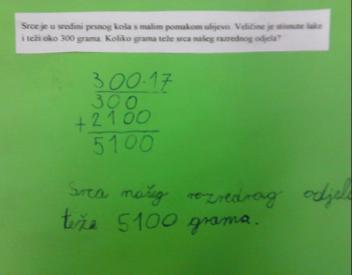 Srce je u sredini prsnog koša s malim pomakom ulijevo. Veličine je stisnute šake
i teži oko 300 grama. Koliko grama teže srca našeg razrednog odjela?
300·17
300
+2100
5100
Srca našeg razrednog odjela
teže 5100 grama.